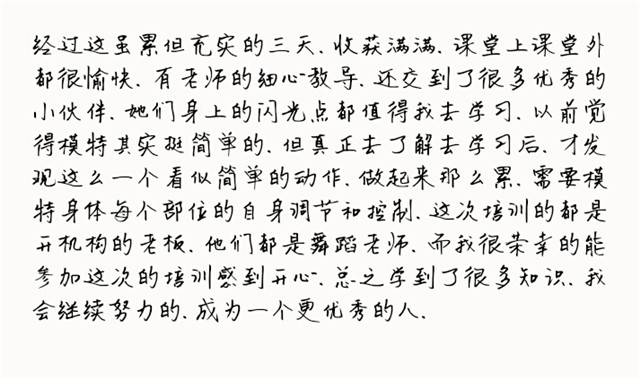 经过这虽累但充实的三天、收获满满、课堂上课堂外
都很愉快、有老师的细心教导、还交到了很多优秀的
小伙伴、她们身上的闪光点都值得我去学习、以前觉
得模特其实挺简单的、但真正去了解去学习后、才发
观这么一个看似简单的动作、做起来那么累、需要模
特身体每个部位的自身调节和控制、这次培训的都是
开机构的老板、他们都是舞蹈老师、而我很荣幸的能
参加这次的培训感到开心、总之学到了很多知识、我
会继续努力的、成为一个更优秀的人、